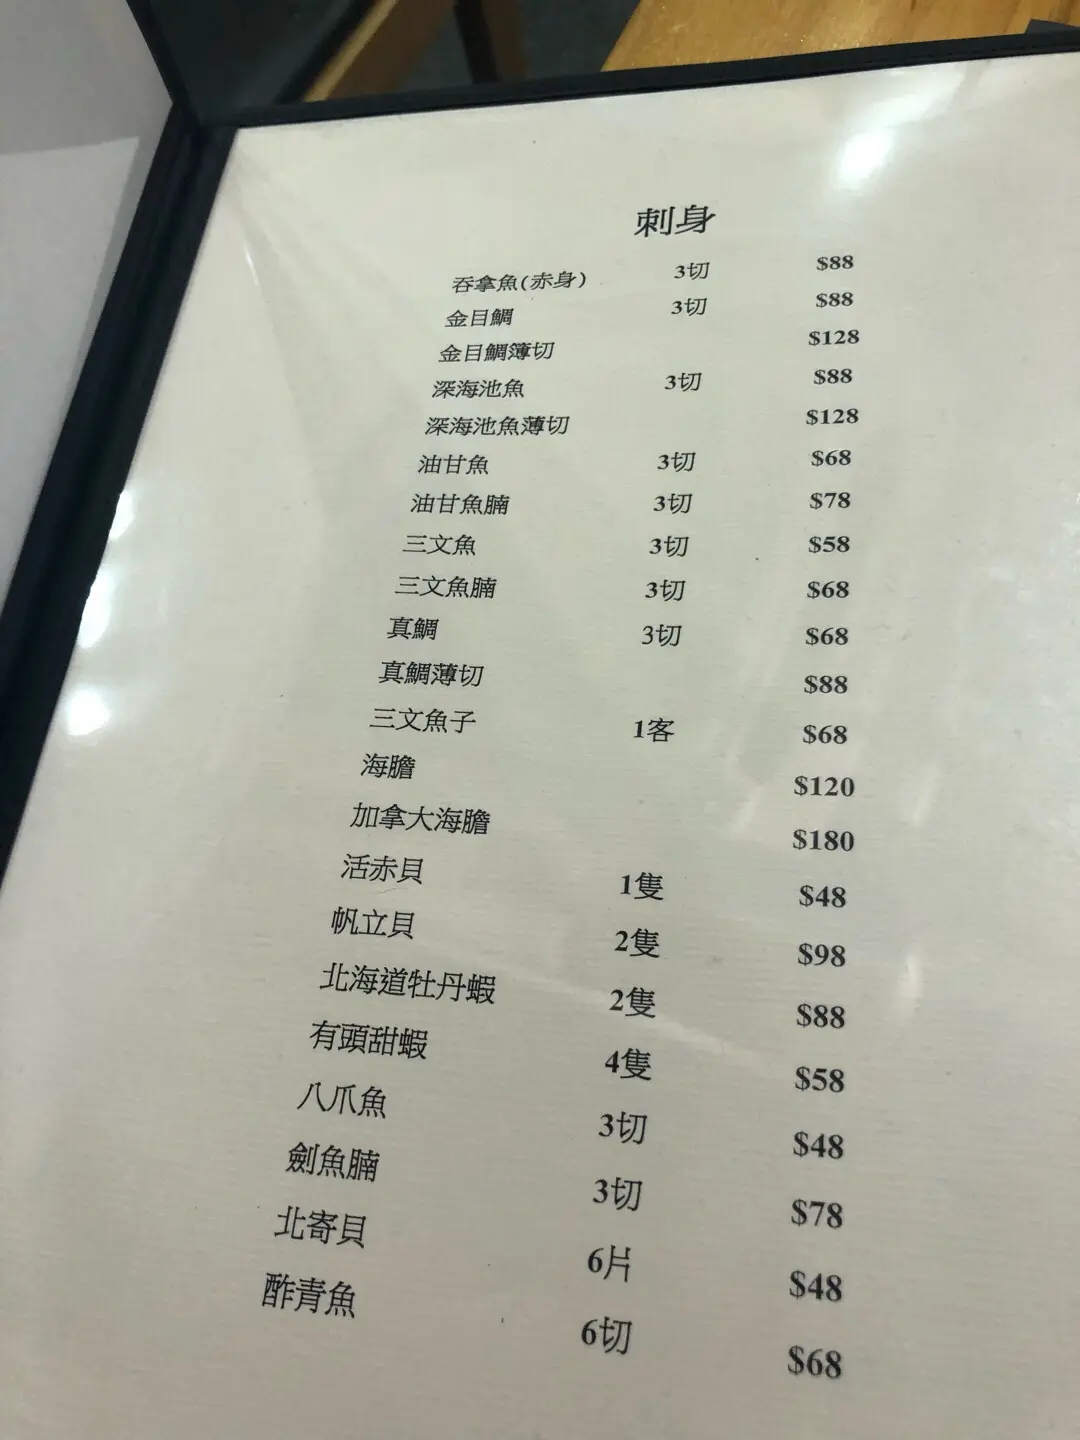 刺身
吞拿魚(赤身) 3切 $88
金目鯛 3切 $88
金目鯛簿切 $128
深海池魚 3切 $88
深海池魚薄切 $128
油甘魚 3切 $68
油甘魚腩 3切 $78
三文魚 3切 $58
三文魚腩 3切 $68
真鯛 3切 $68
真鯛薄切 $88
三文魚子 1客 $68
海膽 $120
加拿大海膽 $180
活赤貝 1隻 $48
帆立貝 2隻 $98
北海道牡丹蝦 2隻 $88
有頭甜蝦 4隻 $58
八爪魚 3切 $48
劍魚腩 3切 $78
北寄貝 6片 $48
酢青魚 6切 $68